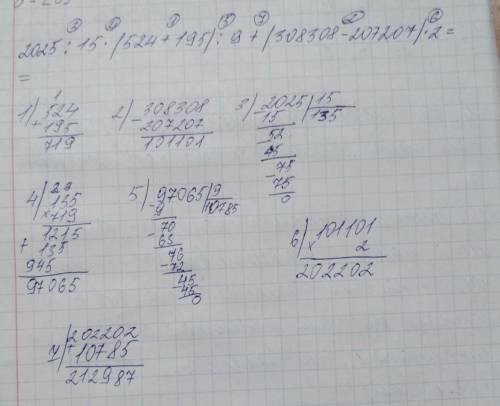 2025 : 15 · (524 + 195) : 9 + (308308 - 207207) · 2 =
=
1) 524
+ 195
719
2) - 308308
207207
101101
3) - 2025 | 15
15 | 135
52
45
- 75
75
0
4) 135
× 719
1215
+ 135
945
97065
5) 97065 | 9
- 9 | 10785
70
- 63
76
- 72
45
45
0
6) 101101
× 2
202202
7) 202202
+ 10785
212987